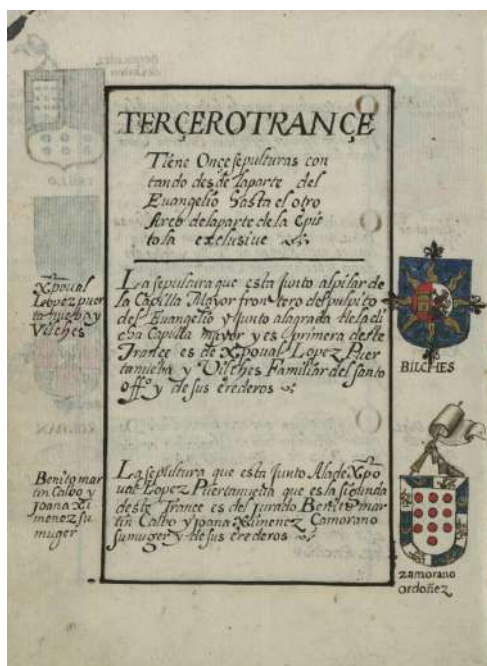 TERÇEROTRANÇE
Tiene Onçe sepulturas con
tando desde laparte del
Euangelio hasta el otro
Arco delaparte dela Epis
tola exclusiue
Xpoual
Lopez puer
ta nueba y
Vilches
La sepultura que esta Junto alpilar de
la Capilla Mayor frontero del pulpito
del Euangelio y Junto alagrada dela di
cha Capilla mayor y es primera deste
Trançe es de Xpoual Lopez Puer
tanueba y Vilches Familiar del santo
offº y de sus erederos
BILCHES
Benito mar
tin Calbo y
joana Xi
menez su
muger
La sepultura que esta Junto Alade Xpo
ual Lopez Puertanueba que es la segunda
deste Trançe es del jurado Benito mar
tin Calbo y joana Ximenez Çamorano
su muger y de sus erederos
zamorano
ordoñez